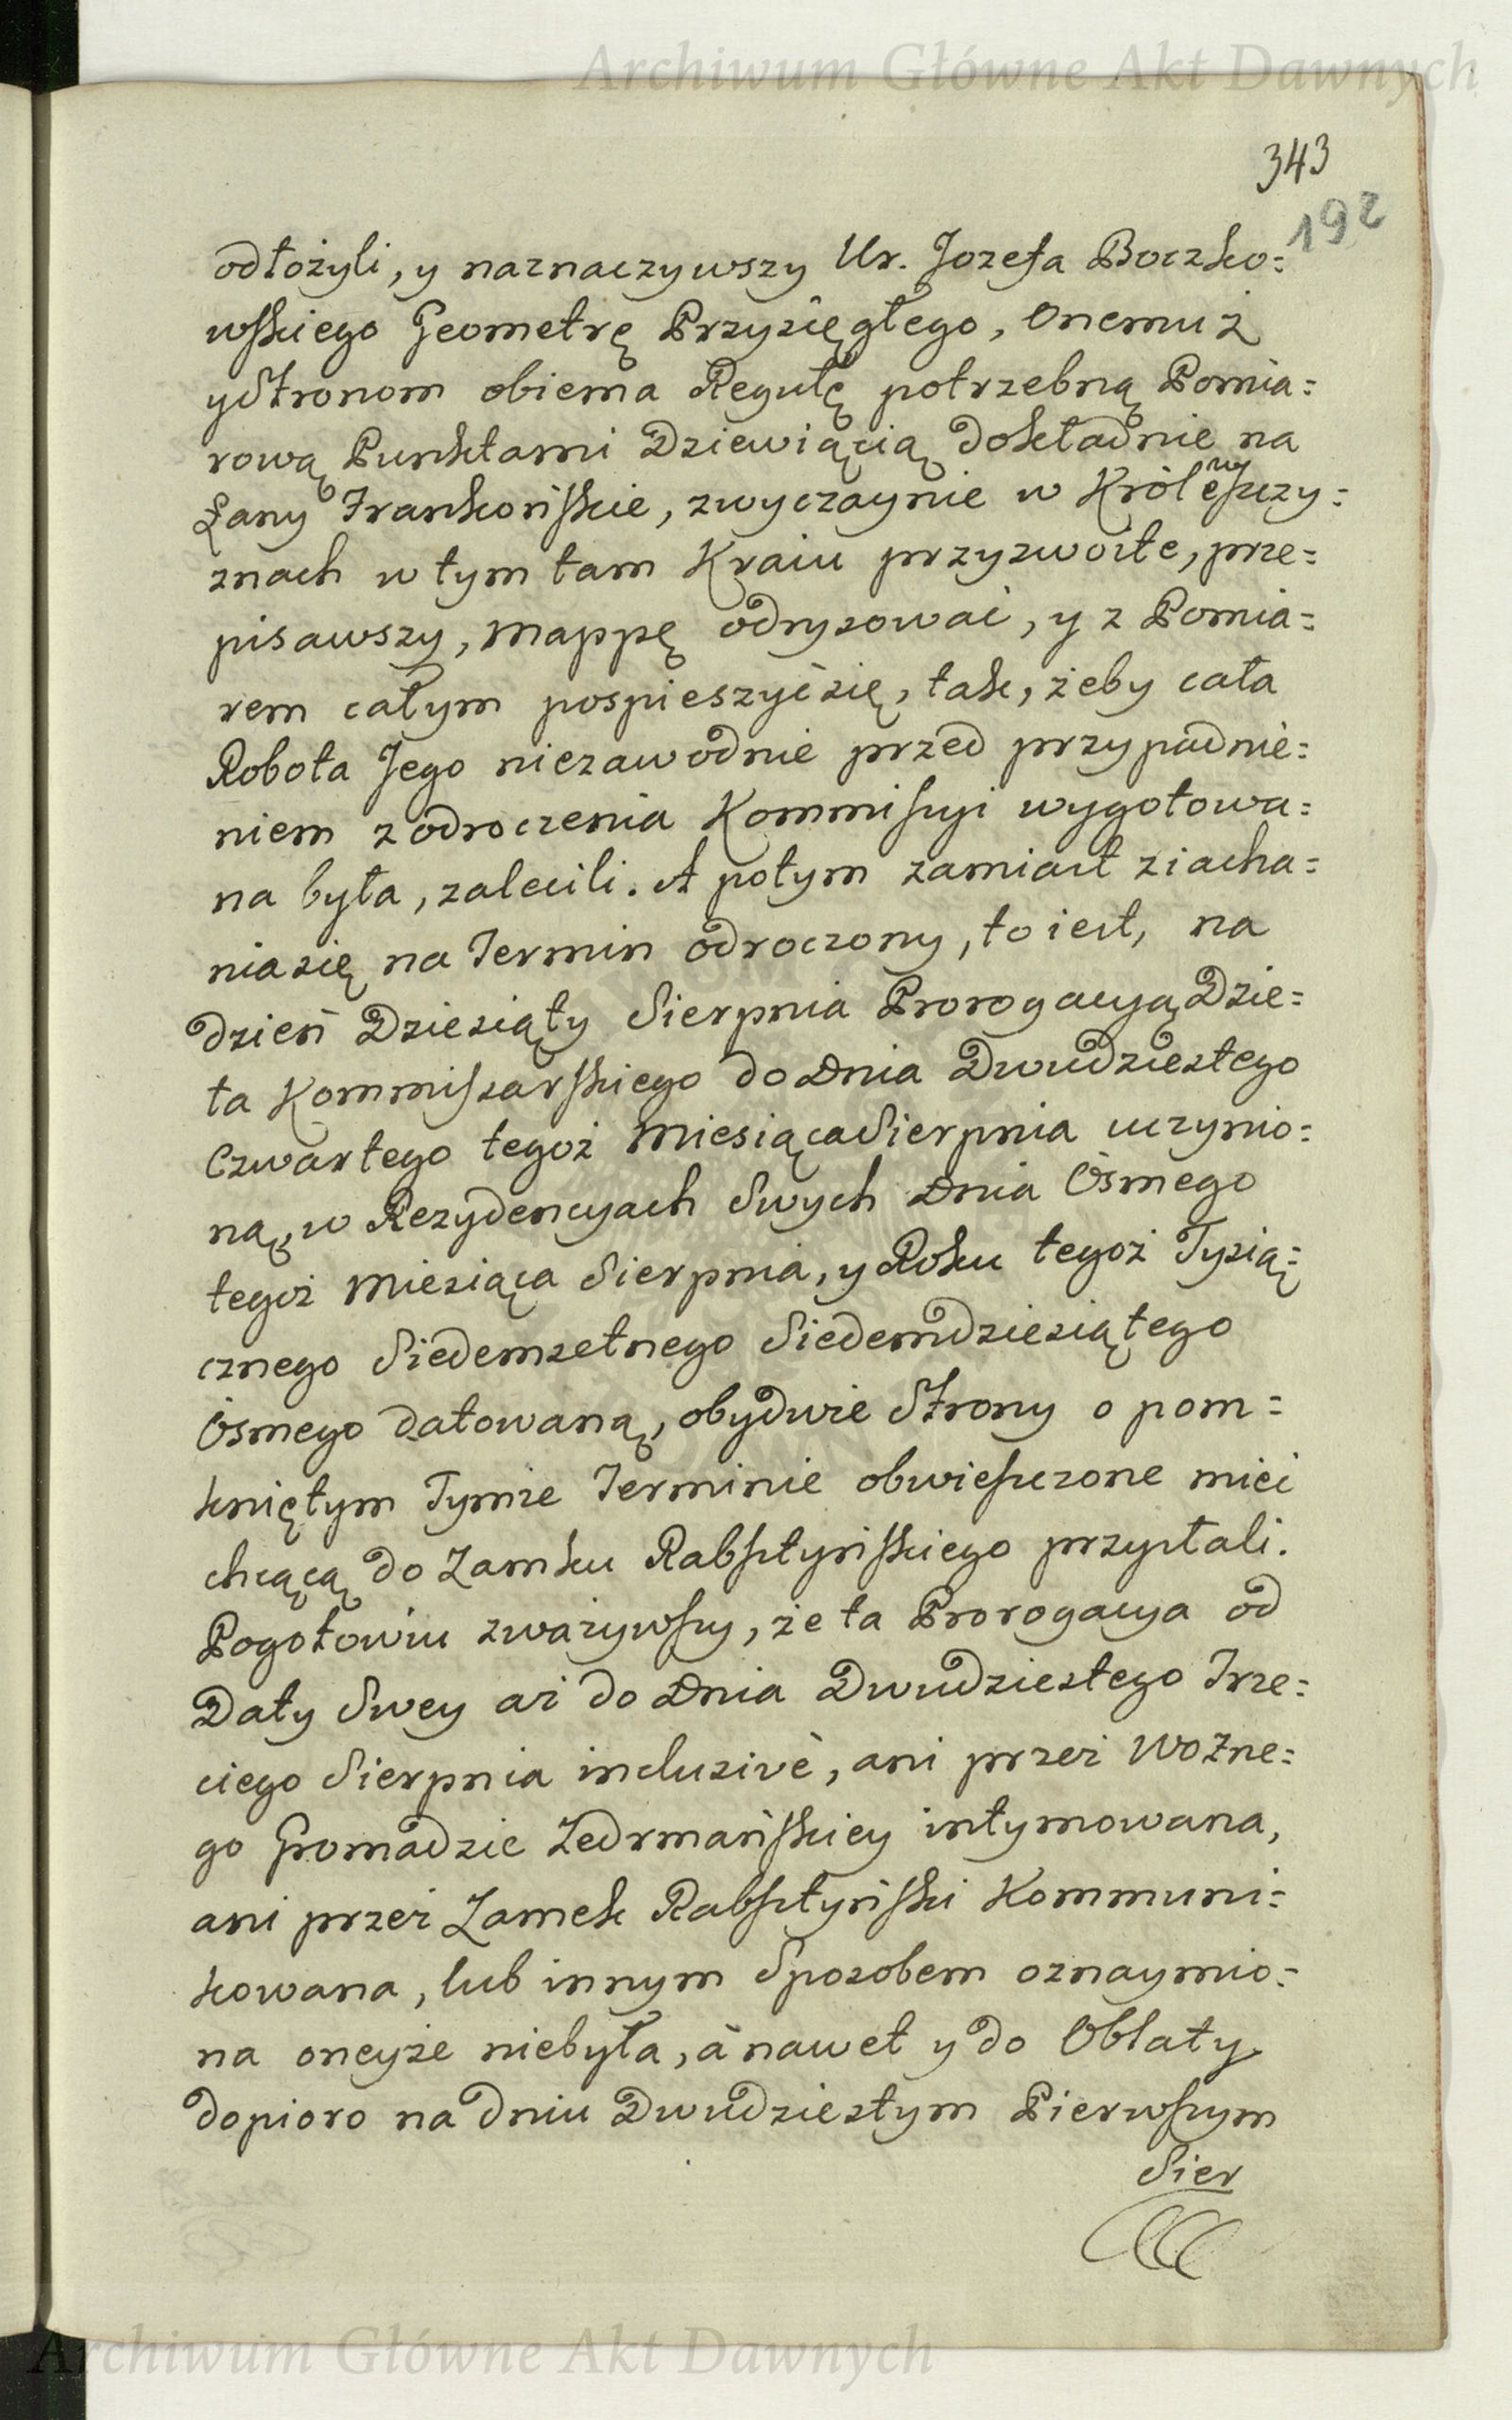 Archiwum Główne Akt Dawnych
343
192
odłożyli, y naznaczywszy Ur. Jozefa Boczko=
wskiego Geometrę Przysięgłego, Onemuż
y Stronom obiema Regułę potrzebną Pomia=
rową Punktami Dziewiącią dokładnie na
Łany Frankońskie, zwyczaynie w Królewszczy=
znach w tym tam Kraiu przyzwoite, prze=
pisawszy, Mappę odrysować, y z Pomia=
rem całym pospieszyć się, tak, żeby cała
Robota Jego niezawodnie przed przypadnie=
niem z odroczenia Kommissyi wygotowa=
na była, zalecili. A potym zamiast ziacha=
nia się na Termin odroczony, to iest, na
dzień Dziesiąty Sierpnia Prorogacyą Dzie=
ła Kommissarskiego do Dnia Dwudziestego
Czwartego tegoż Miesiąca Sierpnia uczynio=
ną, w Rezydencyach Swych Dnia Osmego
tegoż Miesiąca Sierpnia, y Roku tegoż Tysią=
cznego Siedemsetnego Siedemdziesiątego
Osmego datowaną, obydwie Strony o pom=
kniętym Tymże Terminie obwieszczone mieć
chcącą do Zamku Rabsztyńskiego przysłali.
Pogotowiu zważywszy, że ta Prorogacya od
Daty Swey aż do Dnia Dwudziestego Trze=
ciego Sierpnia inclusivè, ani przez Wozne=
go Gromadzie Zedrmańskiey intymowana,
ani przez Zamek Rabsztyński Kommuni=
kowana, lub innym Sposobem oznaymio=
na oneyże niebyła, à nawet y do Oblaty
dopioro na dniu Dwudziestym Pierwszym
Sier
Archiwum Główne Akt Dawnych